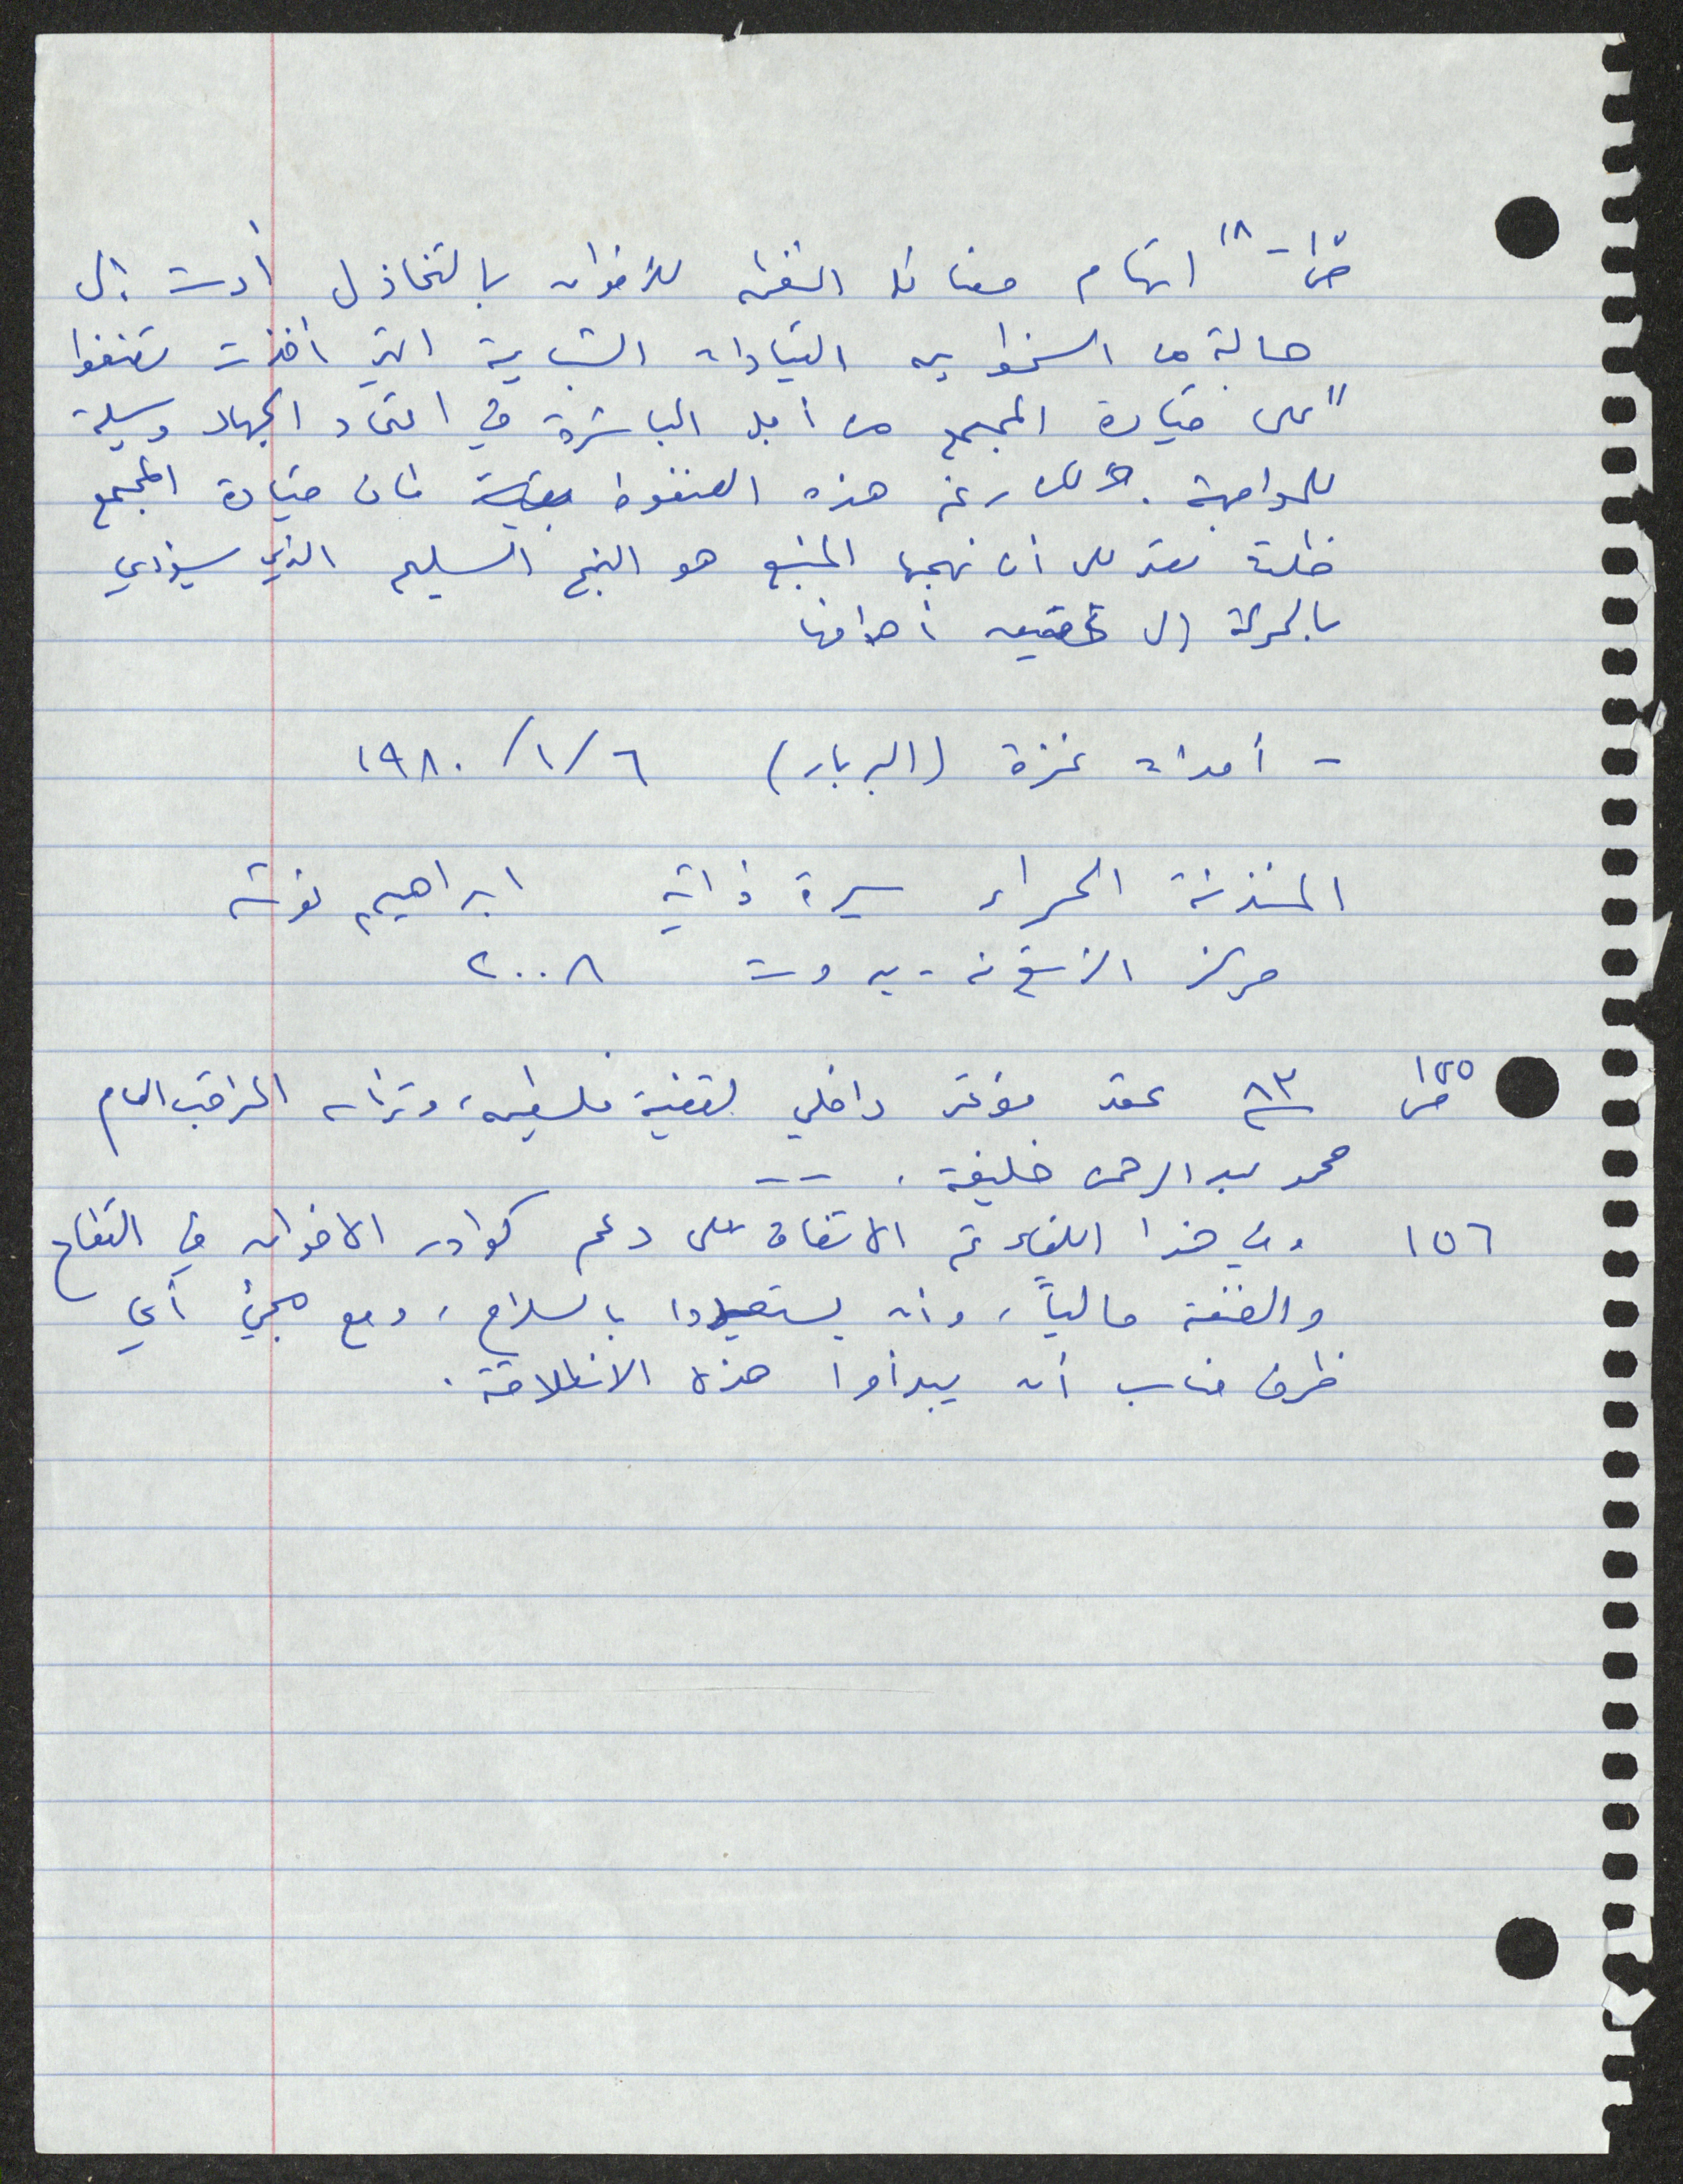 اتهام فصائل المنظمة للاخوان بالتخاذل أدت إلى
حالة من السخط بين القيادات الشبابية التي اخذت تضغط
"على قيادة المجمع من أجل المباشرة في اعتماد الجهاد وسيلة
للمواجهة. رغم هذه الضغوط فان قيادة المجمع
ظلت تعتبر أن نهجها المتبع هو النهج السليم الذي سيؤدي
بالحركة إلى تحقيق أهدافها
- أحداث غزة (البربار) ٦/١/١٩٨٠
المئذنة الحمراء سيرة ذاتية ابراهيم غوشه
مركز الزيتونة - بيروت ٢٠٠٨
ص ١٥٥ ٨٣ عقد مؤتمر داخلي لقضية فلسطين، وترأسه المراقب العام
محمد عبد الرحمن خليفة. --
١٥٦ وفي هذا اللقاء تم الاتفاق على دعم كوادر الاخوان في القطاع
والضفة مالياً، وان يستعدوا بالسلاح، ومع مجيئ أي
ظرف مناسب أن يبدأوا هذه الانطلاقة.